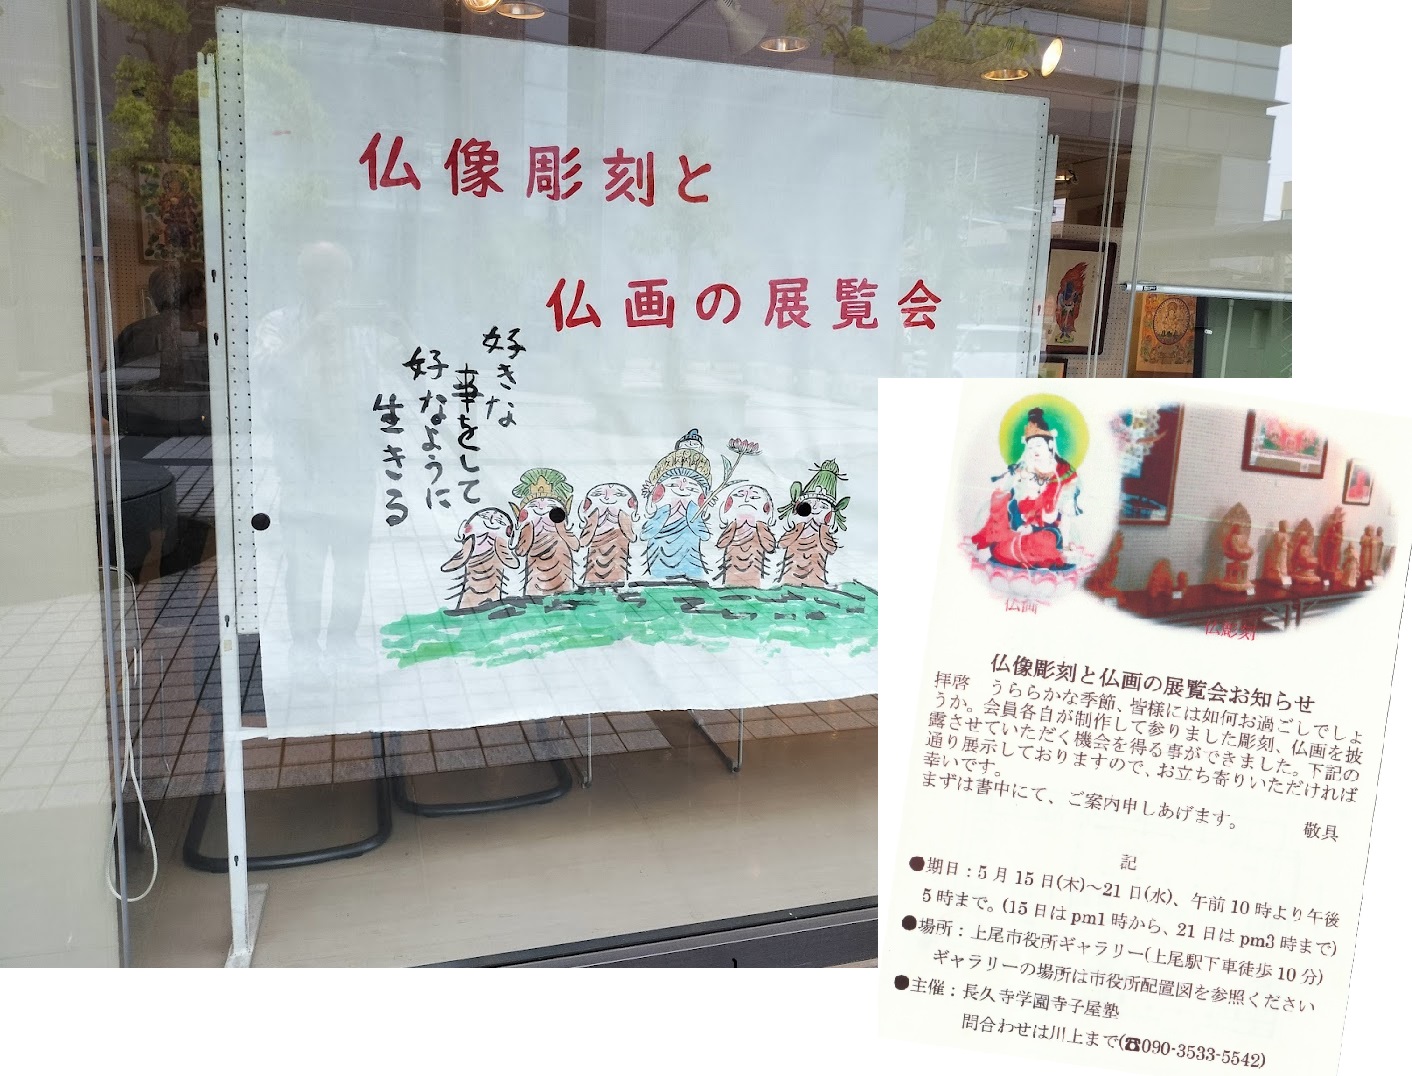 仏像彫刻と
仏画の展覧会
好きな
事をして
好なように
生きる
仏画
仏彫刻
仏像彫刻と仏画の展覧会お知らせ
拝啓　うららかな季節、皆様には如何お過ごしでしょ
うか。会員各自が制作して参りました彫刻、仏画を披
露させていただく機会を得る事ができました。下記の
通り展示しておりますので、お立ち寄りいただければ
幸いです。
まずは書中にて、ご案内申しあげます。　敬具
記
●期日：5月15日(木)～21日(水)、午前10時より午後
5時まで。(15日はpm1時から、21日はpm3時まで)
●場所：上尾市役所ギャラリー(上尾駅下車徒歩10分)
ギャラリーの場所は市役所配置図を参照ください
●主催：長久寺学園寺子屋塾
問合わせは川上まで(☎090-3533-5542)